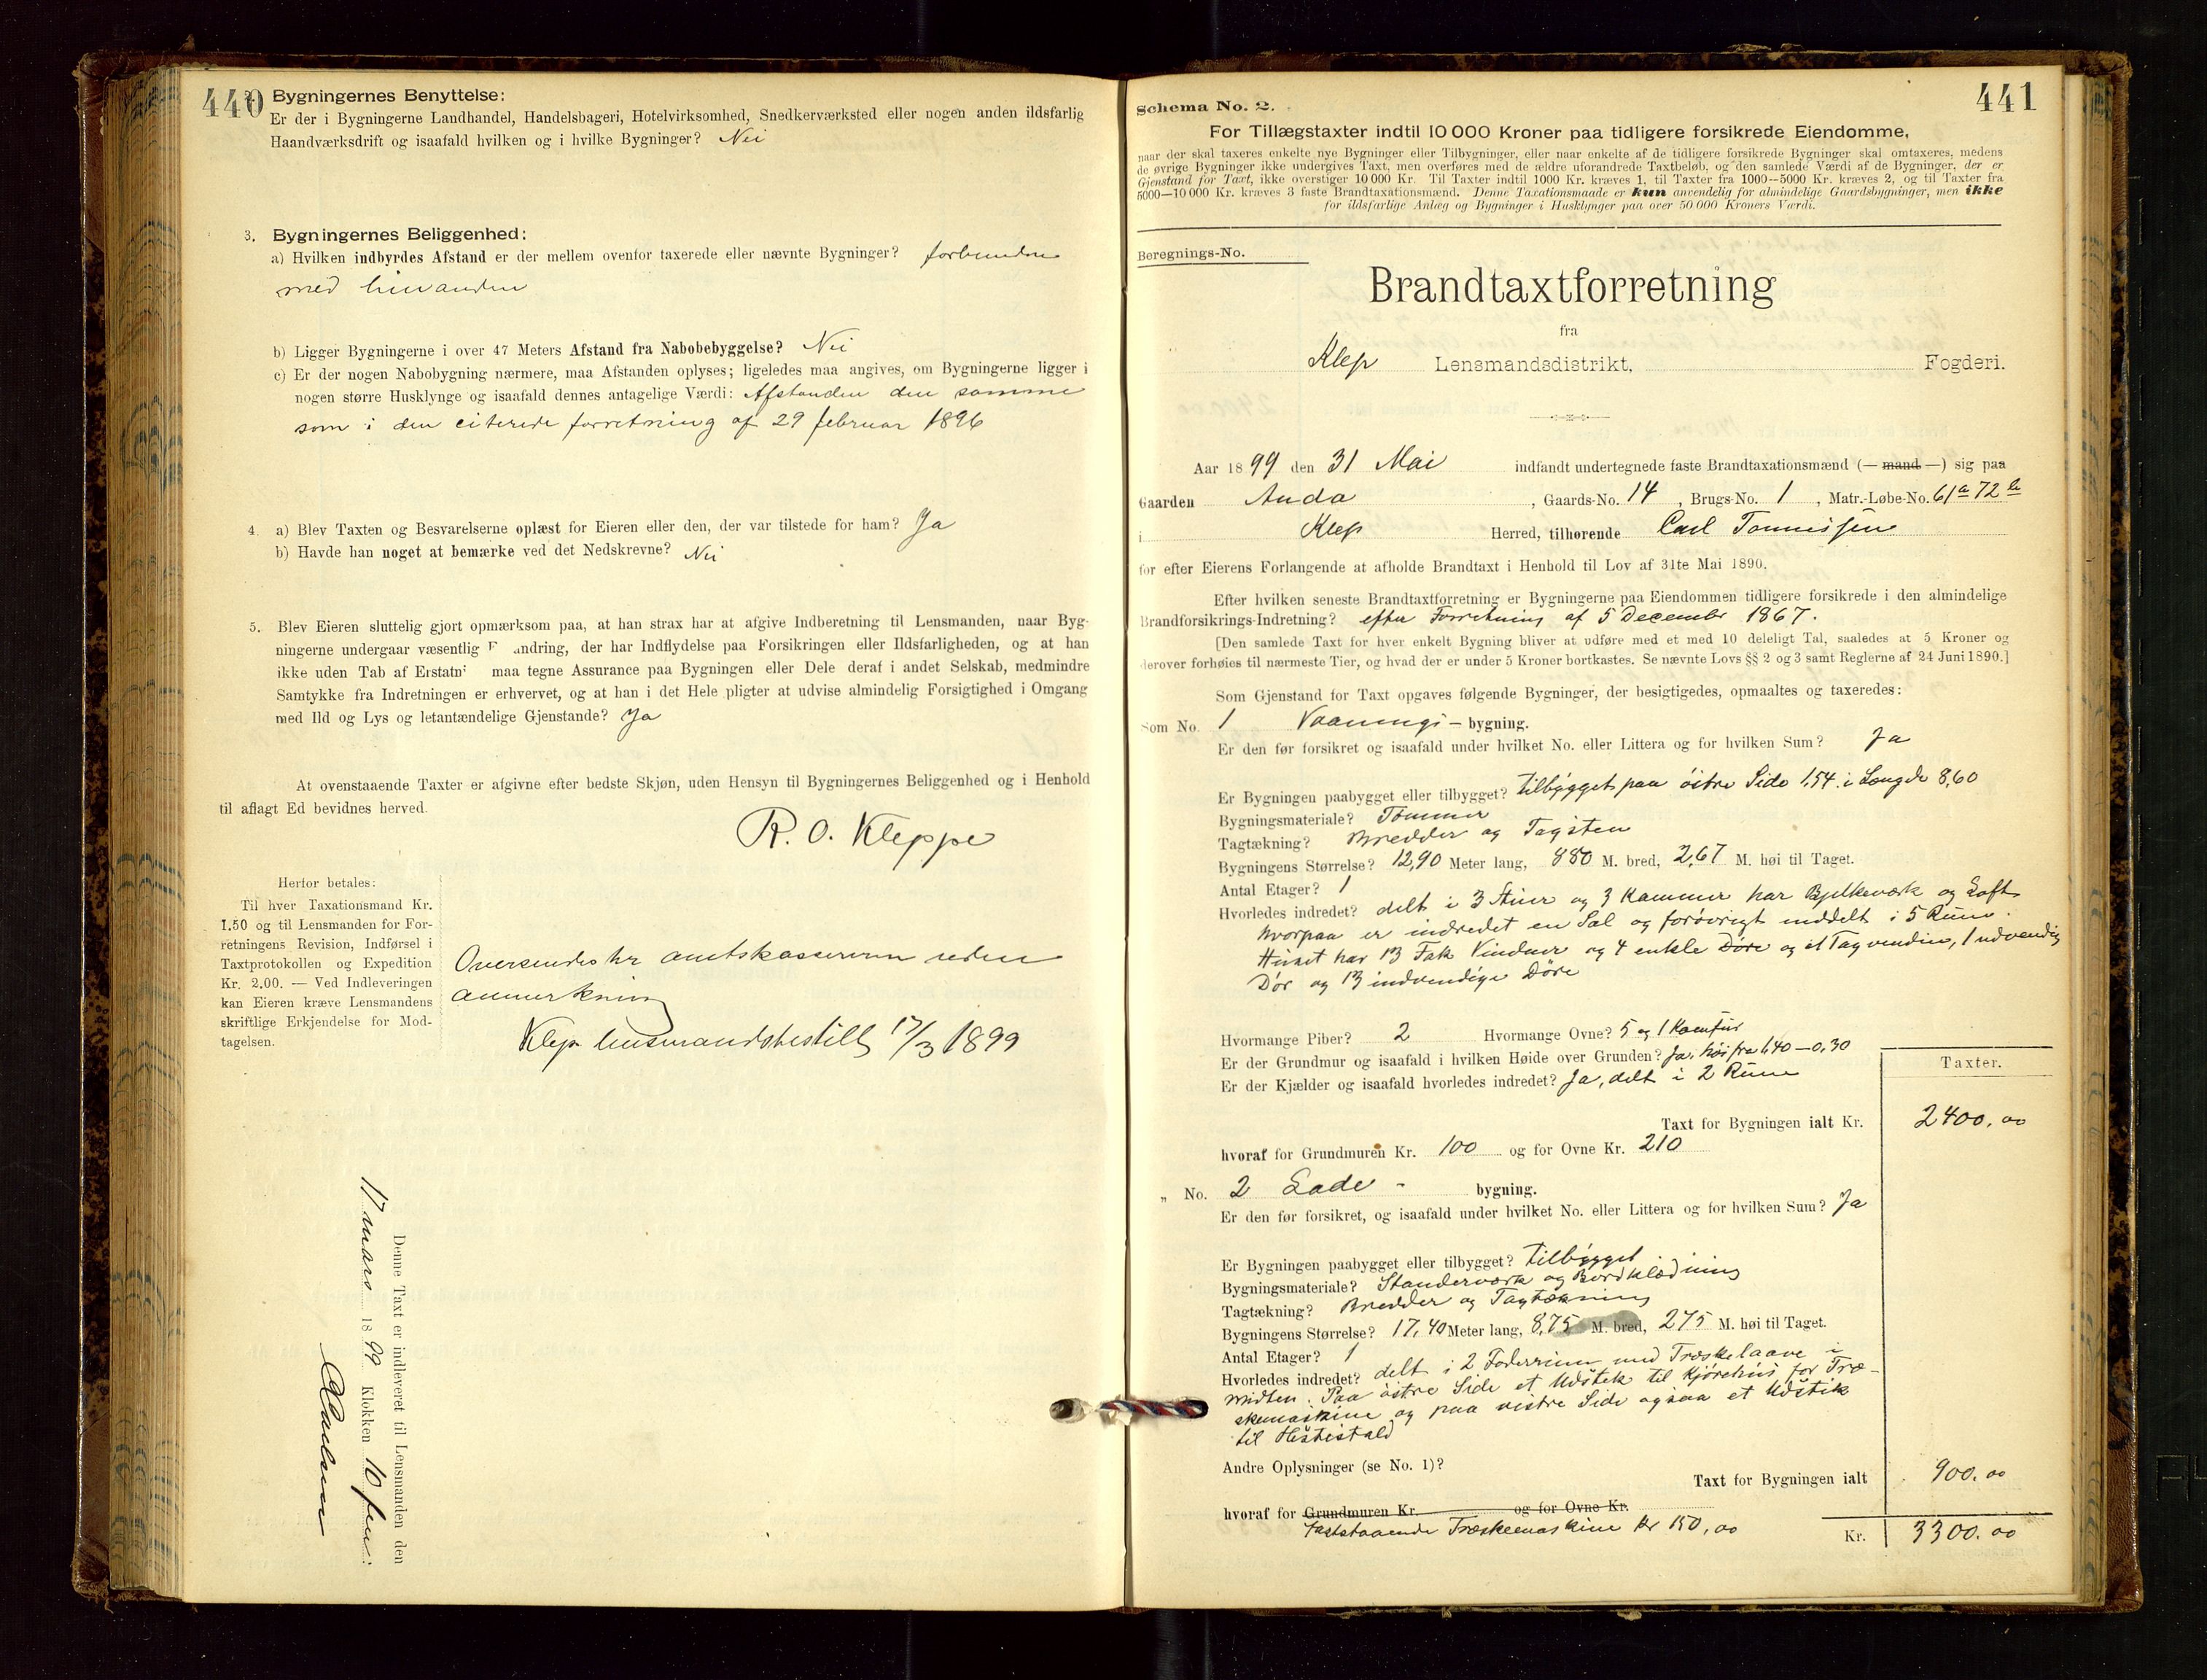 440
Bygningernes Benyttelse:
Er der i Bygningerne Landhandel, Handelsbageri, Hotelvirksomhed, Snedkerværksted eller nogen anden ildsfarlig
Haandværksdrift og isaafald hvilken og i hvilke Bygninger? Nei
3. Bygningernes Beliggenhed:
a) Hvilken indbyrdes Afstand er der mellem ovenfor taxerede eller nævnte Bygninger? forbundne
med hinanden
b) Ligger Bygningerne i over 47 Meters Afstand fra Nabobebyggelse? Nei
c) Er der nogen Nabobygning nærmere, maa Afstanden oplyses; ligeledes maa angives, om Bygningerne ligger i
nogen større Husklynge og isaafald dennes antagelige Værdi: Afstanden den samme
som i den citerede forretning af 29 februar 1896
4. a) Blev Taxten og Besvarelserne oplæst for Eieren eller den, der var tilstede for ham? Ja
b) Havde han noget at bemærke ved det Nedskrevne? Nei
5. Blev Eieren sluttelig gjort opmærksom paa, at han strax har at afgive Indberetning til Lensmanden, naar Byg-
ningerne undergaar væsentlig F andring, der har Indflydelse paa Forsikringen eller Ildsfarligheden, og at han
ikke uden Tab af Erstatn maa tegne Assurance paa Bygningen eller Dele deraf i andet Selskab, medmindre
Samtykke fra Indretningen er erhvervet, og at han i det Hele pligter at udvise almindelig Forsigtighed i Omgang
med Ild og Lys og letantændelige Gjenstande? Ja
At ovenstaaende Taxter er afgivne efter bedste Skjøn, uden Hensyn til Bygningernes Beliggenhed og i Henhold
til aflagt Ed bevidnes herved.
R. O. Kleppe
Herfor betales:
Til hver Taxationsmand Kr.
1.50 og til Lensmanden for For-
retningens Revision, Indførsel i
Taxtprotokollen og Expedition
Kr. 2,00. — Ved Indleveringen
kan Eieren kræve Lensmandens
skriftlige Erkjendelse for Mod-
tagelsen.
Oversendes hr amtskassereren uden
anmerkning
Klep lensmandsbestill 17/3 1899
Denne Taxt er indleveret til Lensmanden den
17 mars 1899 Klokken 10 fm:
441
Schema No. 2.
For Tillægstaxter indtil 10 000 Kroner paa tidligere forsikrede Eiendomme,
naar der skal taxeres enkelte nye Bygninger eller Tilbygninger, eller naar enkelte af de tidligere forsikrede Bygninger skal omtaxeres, medens
de øvrige Bygninger ikke undergives Taxt, men overføres med de ældre uforandrede Taxtbeløb, og den samlede Værdi af de Bygninger, der er
Gjenstand for Taxt, ikke overstiger 10 000 Kr. Til Taxter indtil 1000 Kr. kræves 1, til Taxter fra 1000—5000 Kr. kræves 2, og til Taxter fra
5000—10 000 Kr. kræves 3 faste Brandtaxationsmænd. Denne Taxationsmaade er kun anvendelig for almindelige Gaardsbygninger, men ikke
for ildsfarlige Anlæg og Bygninger i Husklynger paa over 50 000 Kroners Værdi.
Beregnings-No.
Brandtaxtforretning
fra
Klep Lensmandsdistrikt, Fogderi.
Aar 1899 den 31 Mai indfandt undertegnede faste Brandtaxationsmænd (— mand —) sig paa
Gaarden Anda, Gaards-No. 14, Brugs-No. 1, Matr.-Løbe-No. 61a 72b
i Klep Herred, tilhørende Carl Tønnessen
for efter Eierens Forlangende at afholde Brandtaxt i Henhold til Lov af 31te Mai 1890.
Efter hvilken seneste Brandtaxtforretning er Bygningerne paa Eiendommen tidligere forsikrede i den almindelige
Brandforsikrings-Indretning? efter Forretning af 5 December 1867.
[Den samlede Taxt for hver enkelt Bygning bliver at udføre med et med 10 deleligt Tal, saaledes at 5 Kroner og
derover forhøies til nærmeste Tier, og hvad der er under 5 Kroner bortkastes. Se nævnte Lovs §§ 2 og 3 samt Reglerne af 24 Juni 1890.]
Som Gjenstand for Taxt opgaves følgende Bygninger, der besigtigedes, opmaaltes og taxeredes:
Som No. 1 Vaanings- bygning.
Er den før forsikret og isaafald under hvilket No. eller Littera og for hvilken Sum? Ja
Er Bygningen paabygget eller tilbygget? tilbygget paa østre Side 1,54 i Længde 8,60
Bygningsmateriale? Tømmer
Tagtækning? Bredder og Tagsten
Bygningens Størrelse? 12,90 Meter lang, 880 M. bred, 2,67 M. høi til Taget.
Antal Etager? 1
Hvorledes indredet? delt i 3 Stuer og 3 Kammer har Bjelkeværk og Loft
hvorpaa er indredet en Sal og forøvrigt inddelt i 5 Rum.
Huset har 13 Fak Vinduer og 4 enkle Døre og et Tagvendue, 1 udvendig
Dør og 13 indvendige Døre
Hvormange Piber? 2 Hvormange Ovne? 5 og 1 Komfur
Er der Grundmur og isaafald i hvilken Høide over Grunden? Ja, høi fra 1,40—0,30
Er der Kjælder og isaafald hvorledes indredet? Ja, delt i 2 Rum
Taxter.
Taxt for Bygningen ialt Kr. 2400,00
hvoraf for Grundmuren Kr. 100 og for Ovne Kr. 210
„ No. 2 Lade- bygning.
Er den før forsikret, og isaafald under hvilket No. eller Littera og for hvilken Sum? Ja
Er Bygningen paabygget eller tilbygget? tilbygget
Bygningsmateriale? Standerværk og Bordklædning
Tagtækning? Bredder og Tagtækning
Bygningens Størrelse? 17,40 Meter lang, 8,75 M. bred, 275 M. høi til Taget.
Antal Etager? 1
Hvorledes indredet? delt i 2 Foderrum med Træskelaave i
midten. Paa østre Side et Udstik til Kjørehus for Træ-
skemaskine og paa vestre Side ogsaa et Udstik
til Hestestald
Andre Oplysninger (se No. 1)?
Taxt for Bygningen ialt 900,00
hvoraf for Grundmuren Kr. og for Ovne Kr.
faststaaende Træskemaskine Kr 150,00
Kr. 3300,00